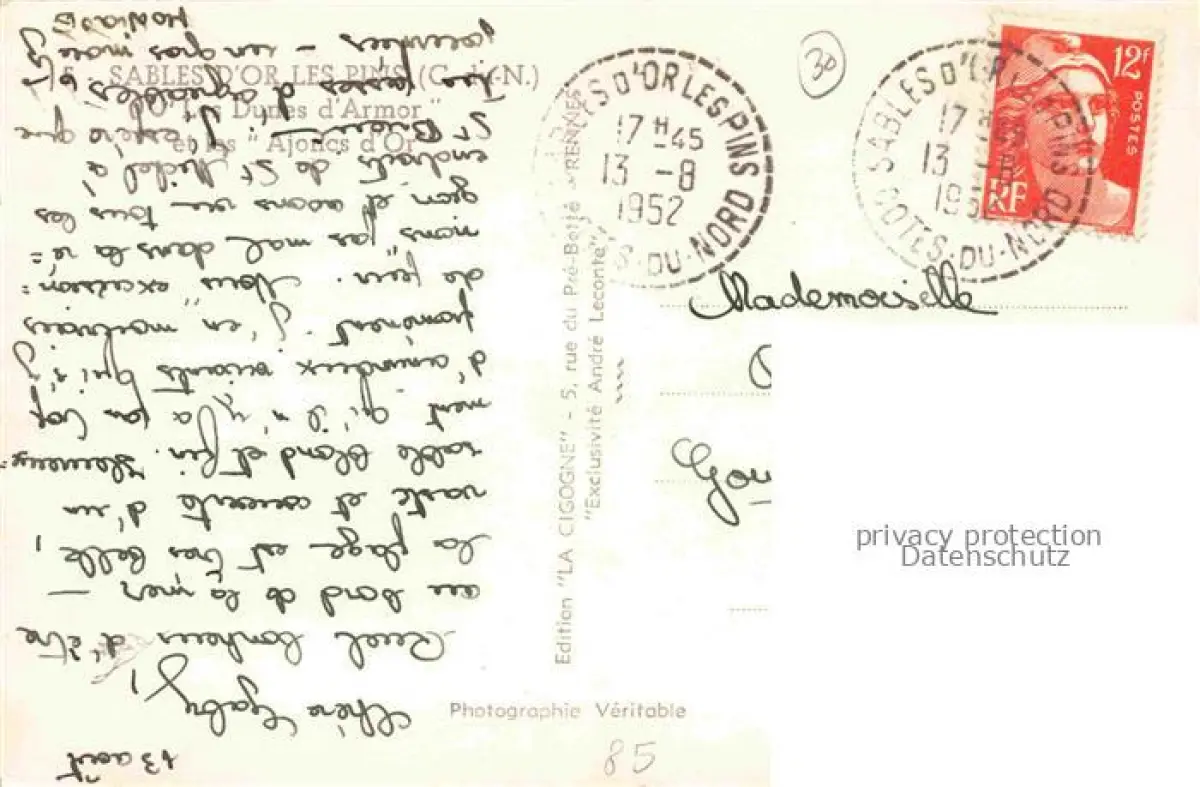 5 - SABLES D'OR LES PINS (C.-du-N.)
"Les Dunes d'Armor"
et les "Ajoncs d'Or"
13 août
Chère Gaby,
Quel bonheur d'être
au bord de la mer —
La plage est très belle,
vaste et couverte d'un
sable blond et fin. Heureuse=
ment qu'il n'y a pas trop
d'amoureux
promènent. J'en
de jeux. Nous "excursion=
nons" pas mal dans la ré=
gion et avons vu tous les
endroits de St Michel à
St Brieuc. J'espère que
tu passes d'agréables
journées – un gros
Edition "LA CIGOGNE" - 5, rue du Pré-Botté - RENNES
"Exclusivité André Leconte"
Photographie Véritable
85
30
SABLES D'OR LES PINS
17 H 45
13 - 8
1952
COTES-DU-NORD
SABLES D'OR LES PINS
17 H
13
195
COTES-DU-NORD
12f
POSTES
RF
Mademoiselle
privacy protection
Datenschutz